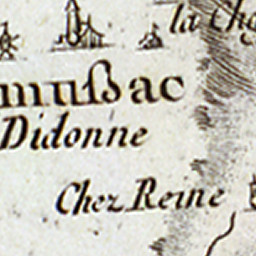 la Cha
mußac
Didonne
Chez Reine